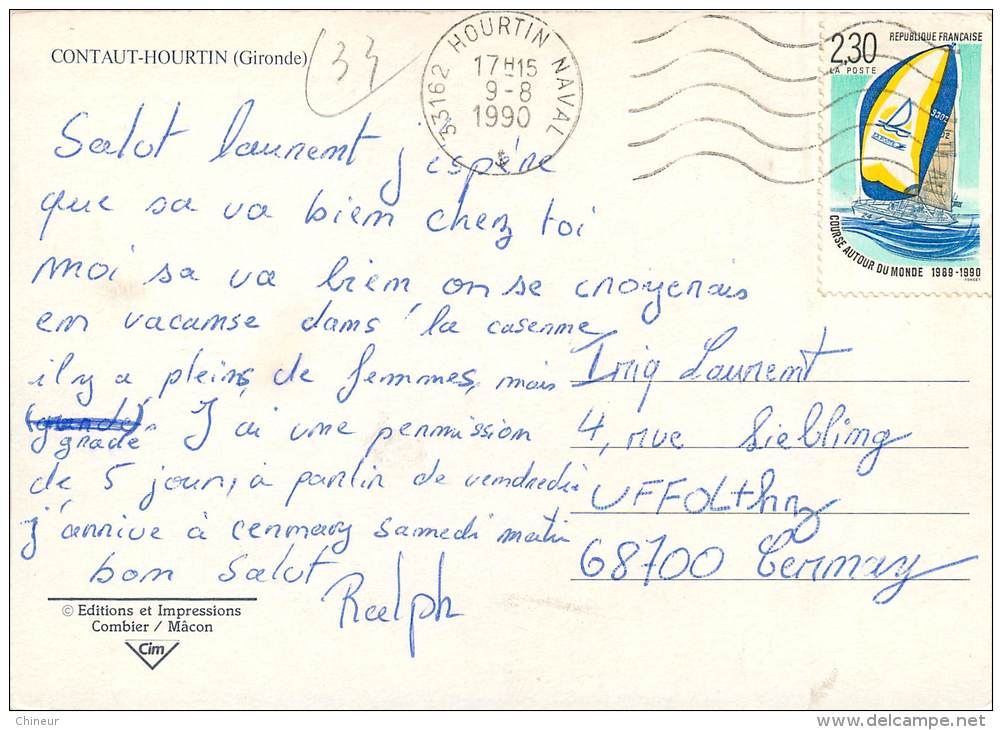 CONTAUT-HOURTIN (Gironde)
(33
33162 HOURTIN NAVAL
17H15
9-8
1990
2,30
REPUBLIQUE FRANCAISE
LA POSTE
COURSE AUTOUR DU MONDE 1989-1990
Salut Laurent j'espére
que sa va bien chez toi
moi sa va bien on se croyerais
en vacanse dans la caserne
il y a pleins de femmes, mais
grade. J'ai une permission
de 5 jour, a partir de vendredi
j'arrive à cermay samedi matin
bon salut
Ralph
Laurent
4, rue Siebling
UFFOLthz
68700 Cermay
© Editions et Impressions
Combier / Mâcon
Cim
Chineur
delcampe.net